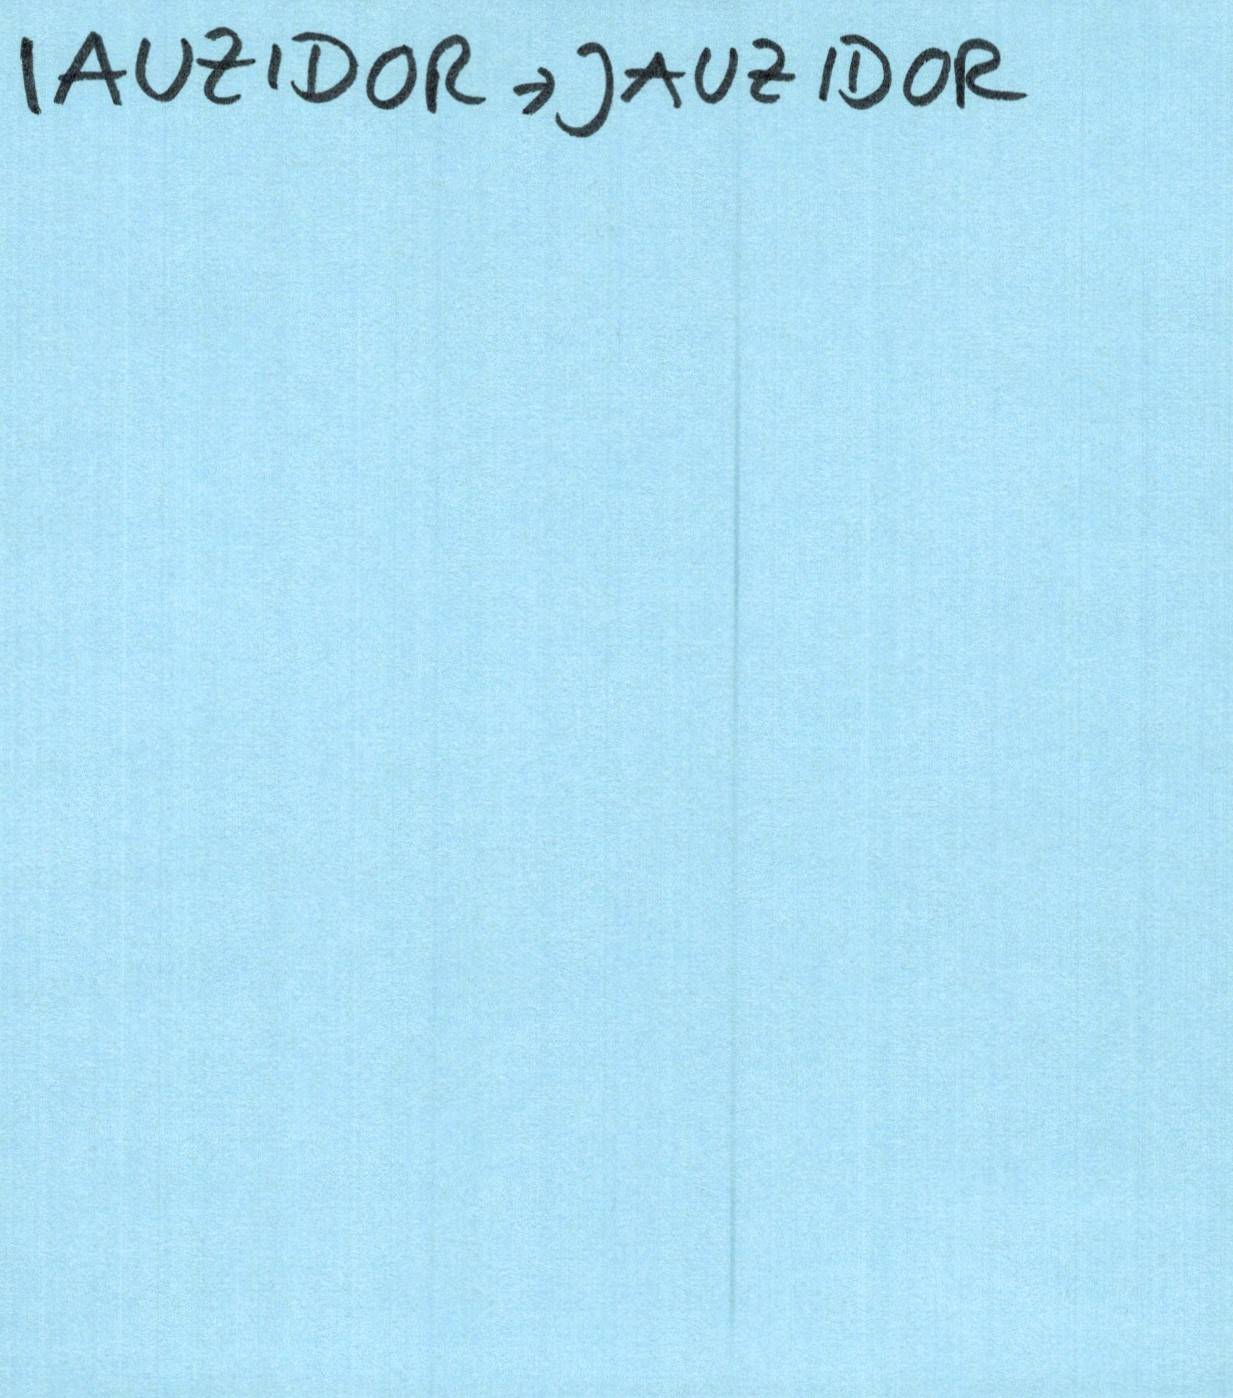 IAUZIDOR → JAUZIDOR